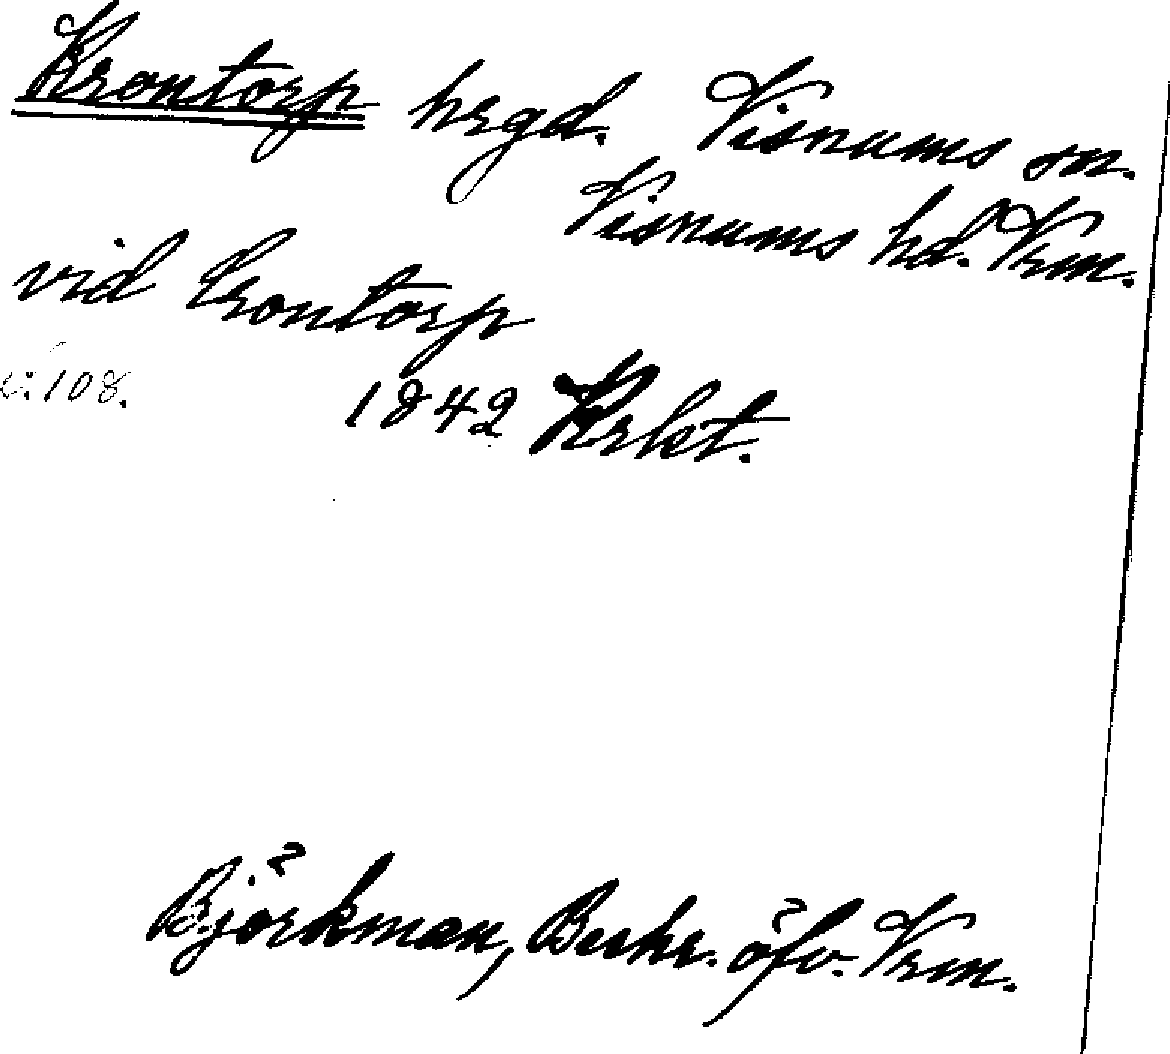 Krontorp hrgd. Visnums sn.
Visnums hd. Vrm.
vid Crontorp
:108. 1842 Krkt.
Björkman, Beskr. öfv. Vrm.